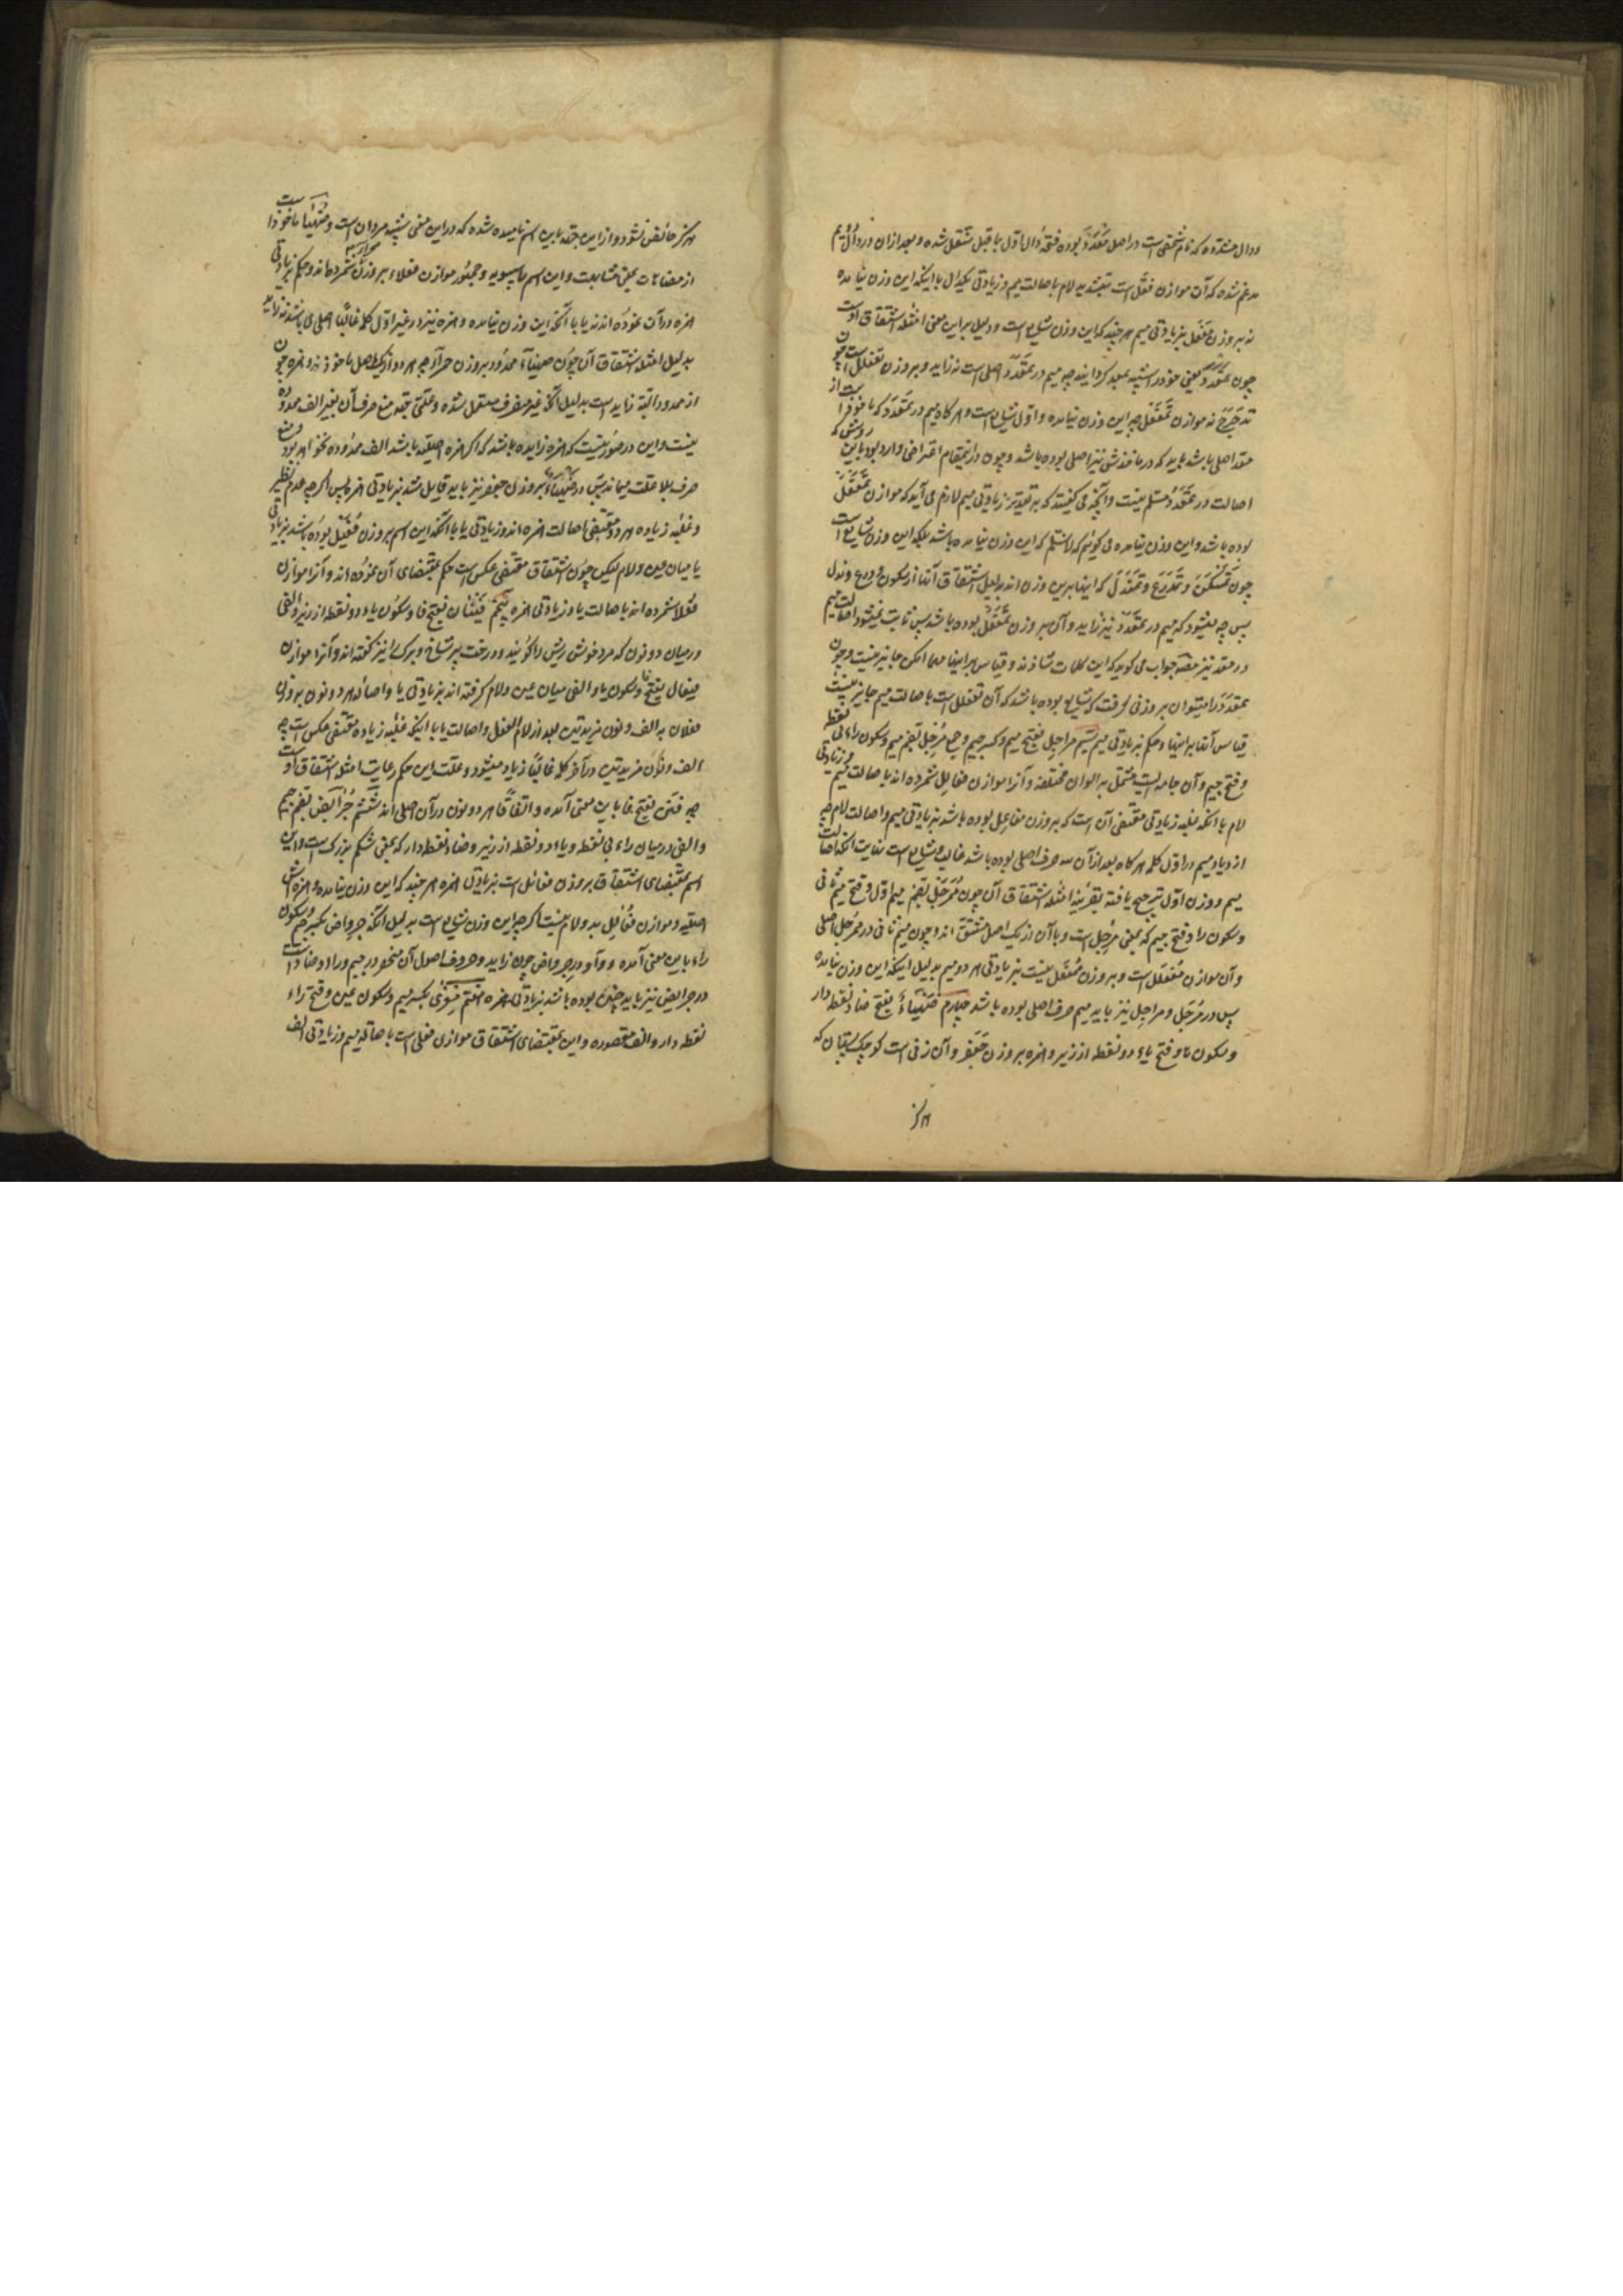 ودال مشدّده که نام شخصی است در اصل مَعْدَدَ بوده فتحه دال اوّل بماقبل منتقل شده و بعد از ان در دال دیم
مدغم شده که آن موازن فعلّ است بتشدید لام باصالت میم و زیادتی یکدال با اینکه این وزن نیامده
نه بر وزن مَفْعَل بزیادتی میم هر چند که این وزن شایع است و دلیل بر این معنی امثله اشتقاق اوست
چون تَمَعْدَدَ بمعنی خود را شبیه بمعد گردانید چه میم در تمعدد اصلی است نه زاید و بر وزن تفعلل است چون
تدحرج نه موازن تمفعل چه این وزن نیامده و اوّل شایع است و هر گاه میم در تمعدد که ماخوذ است از
معد اصلی باشد باید که در ماخذش نیز اصلی بوده باشد و چون در اینمقام اعتراضی وارد بود باین روش که
اصالت در تمعدد مسلّم نیست و آنچه می گفتند که بر تقدیر زیادتی میم لازم می آید که موازن تمفعل
بوده باشد و این وزن نیامده می گوئیم که لا نسلّم که این وزن نیامده باشد بلکه این وزن شایع است
چون تمسکن و تمدرع و تمندل که اینها برین وزن اند بدلیل اشتقاق آنها از سکون و درع و ندل
پس چه میشود که میم در تمعدد نیز زاید و آن بر وزن تمفعل بوده باشد پس ثابت نمیشود اصالت میم
در معد نیز مصنّف جواب می گوید که این کلمات شاذند و قیاس بر اینها مهما امکن جایز نیست و چون
تمعدد را میتوان بر وزنی گرفت که شایع بوده باشد که آن تفعلل است باصالت میم جایز نیست
قیاس آن باینها و حکم بزیادتی میم سیّم مراجل بفتح میم و کسر جیم و جمع مرجل بضم میم و سکون راء بی نقطه
و فتح جیم و آن جامه ایست مشتمل به الوان مختلفه و آنرا موازن فعالل شمرده اند باصالت میم و زیادتی
لام با انکه غلبه زیادتی مقتضی آن است که بر وزن مفاعل بوده باشد بزیادتی میم و اصالت لام چه
ازدیاد میم در اوّل کلمه هر گاه بعد از آن سه حرف اصلی بوده باشد غالب و شایع است نهایت انکه اصالت
میم و وزن اوّل ترجیح یافته بقرینه امثله اشتقاق آن چون ممرجل بضم میم اوّل و فتح میم ثانی
و سکون را و فتح جیم که بمعنی مرجل است و با آن از یک اصل مشتق اند و چون میم ثانی در ممرجل اصلی
و آن موازن مفعلل است و بر وزن ممفعل نیست بزیادتی هر دو میم بدلیل اینکه این وزن نیامده
پس در مرجل و مراجل نیز باید میم حرف اصلی بوده باشد چهارم ضهیاء بفتح ضاد نقطه دار
و سکون ها و فتح یاء دو نقطه از زیر و همزه بر وزن جعفر و آن زنی است کوچک پستان که
هرگز
هرگز حائض نشود و از این جهة باین اسم نامیده شده که در این معنی شبیه مردان است و ضهیأ ماخوذ است
از مضاهات بمعنی مشابهت و این اسم را سیبویه و جمهور موازن فعلاء بر وزن شمرده اند و حکم بزیادتی
همزه در آن نموده اند نه یا با آنکه این وزن نیامده و همزه نیز در غیر اوّل کلمه غالباً اصلی می باشد نه زاید
بدلیل امثله اشتقاق آن چون ضهیاء ممدود بر وزن حمراء چه هر دو از یک اصل ماخوذند و همزه چون
از ممدود البته زاید است بدلیل انکه غیر منصرف مستعمل شده و علّتی جهة منع صرف آن بغیر الف ممدوده
نیست و این در صورتیست که همزه زایده باشد که اگر همزه اصلیّه باشد الف ممدوده نخواهد بود و منع
صرف بلا علّت میماند پس در ضهیأ بر وزن جعفر نیز باید قایل شد بزیادتی همزه پس اگر چه عدم نظیر
و غلبه زیاده هر دو مقتضی اصالت همزه اند و زیادتی یا با آنکه این اسم بر وزن فعیل بوده باشد بزیادتی
یا میان عین و لام لیکن چون اشتقاق مقتضی عکس است حکم بمقتضای آن نموده اند و آنرا موازن
فعلأ شمرده اند باصالت یا و زیادتی همزه پنجم فینان بفتح فا و سکون یاء دو نقطه از زیر و الفی
در میان دو نون که مرد خوش ریش را گویند و درخت پر شاخ و برگ را نیز گفته اند و آنرا موازن
فیعال بفتح فا و سکون یا و الفی میان عین و لام گرفته اند بزیادتی یا و اصالة هر دو نون نه بر وزن
فعلان به الف و نون مزیدتین بعد از لام الفعل و اصالت یا با اینکه غلبه زیاده مقتضی عکس است چه
الف و نون مزیدتین در آخر کلمه غالباً زیاد میشود و علّت این حکم رعایت امثله اشتقاق اوست
چه فنن بفتح فا باین معنی آمده و اتفاقاً هر دو نون در آن اصلی اند ششم جرائض بضم جیم
و الفی در میان راء بی نقطه و یاء دو نقطه از زیر و ضاد نقطه دار که بمعنی شکم بزرگ است و این
اسم بمقتضای اشتقاق بر وزن فعائل است بزیادتی همزه هر چند که این وزن نیامده و همزه اش
اصلیّه و موازن فعالل بدو لام نیست اگر چه این وزن شایع است بدلیل آنکه جرواض بکسر جیم و سکون
راء باین معنی آمده و واو در جرواض چون زاید و حروف اصول آن منحصر در جیم و راء و ضاد است
در جرائض نیز باید چنین بوده باشد بزیادتی همزه هفتم معزی بکسر میم و سکون عین و فتح زاء
نقطه دار و الف مقصوره و این بمقتضای اشتقاق موازن فعلی است باصالة میم و زیادتی الف